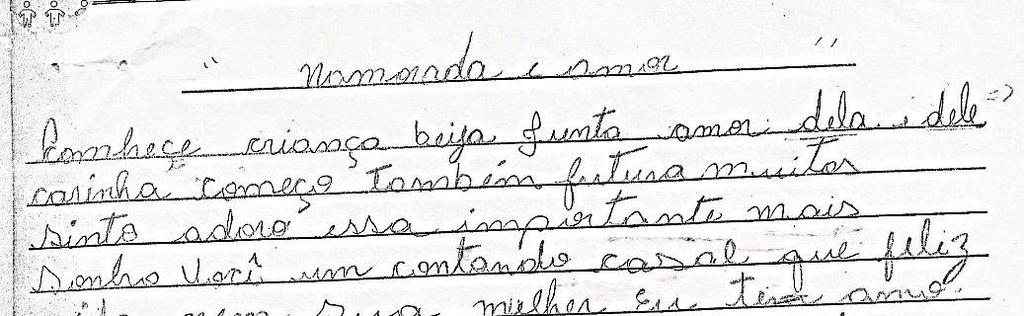 " Namorada e amor "
Comheçe criança beija junto amor dela e dele =>
carinha começo também futura muitos
sinto adoro essa importante mais
sonho você um contando casal que feliz
nem mulher eu tem amo.